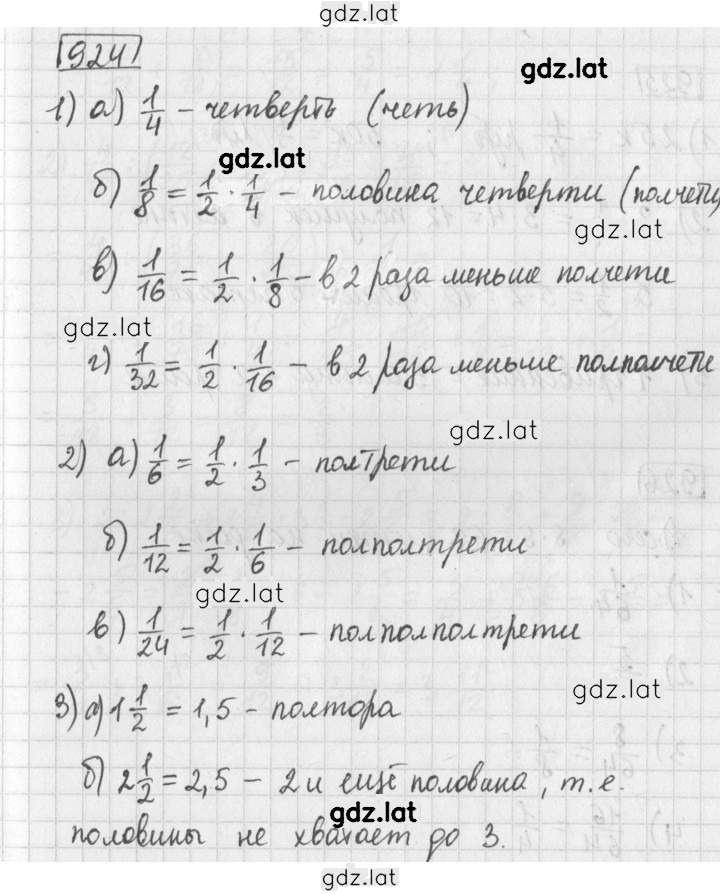 gdz.lat
924
gdz.lat
1) а) 1/4 - четверть (четь)
gdz.lat
б) 1/8 = 1/2 · 1/4 - половина четверти (полчети
gdz.lat
в) 1/16 = 1/2 · 1/8 - в 2 раза меньше полчети
gdz.lat
г) 1/32 = 1/2 · 1/16 - в 2 раза меньше полполчети
gdz.lat
2) а) 1/6 = 1/2 · 1/3 - полтрети
б) 1/12 = 1/2 · 1/6 - полполтрети
gdz.lat
в) 1/24 = 1/2 · 1/12 - полполполтрети
gdz.lat
3) а) 1 1/2 = 1,5 - полтора
б) 2 1/2 = 2,5 - 2 и ещё половина, т.е.
gdz.lat
половины не хватает до 3.
gdz.lat